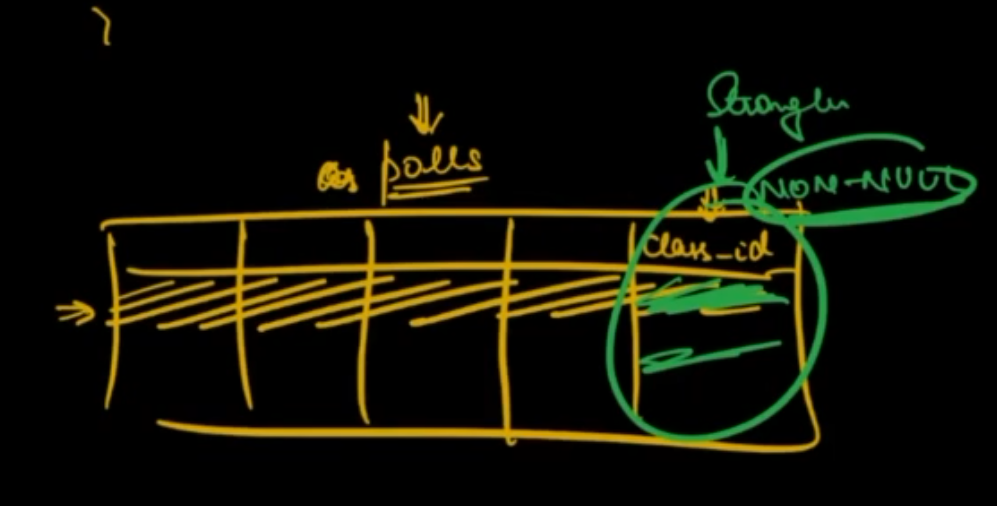 Strongly
polls
NON-NULL
class_id